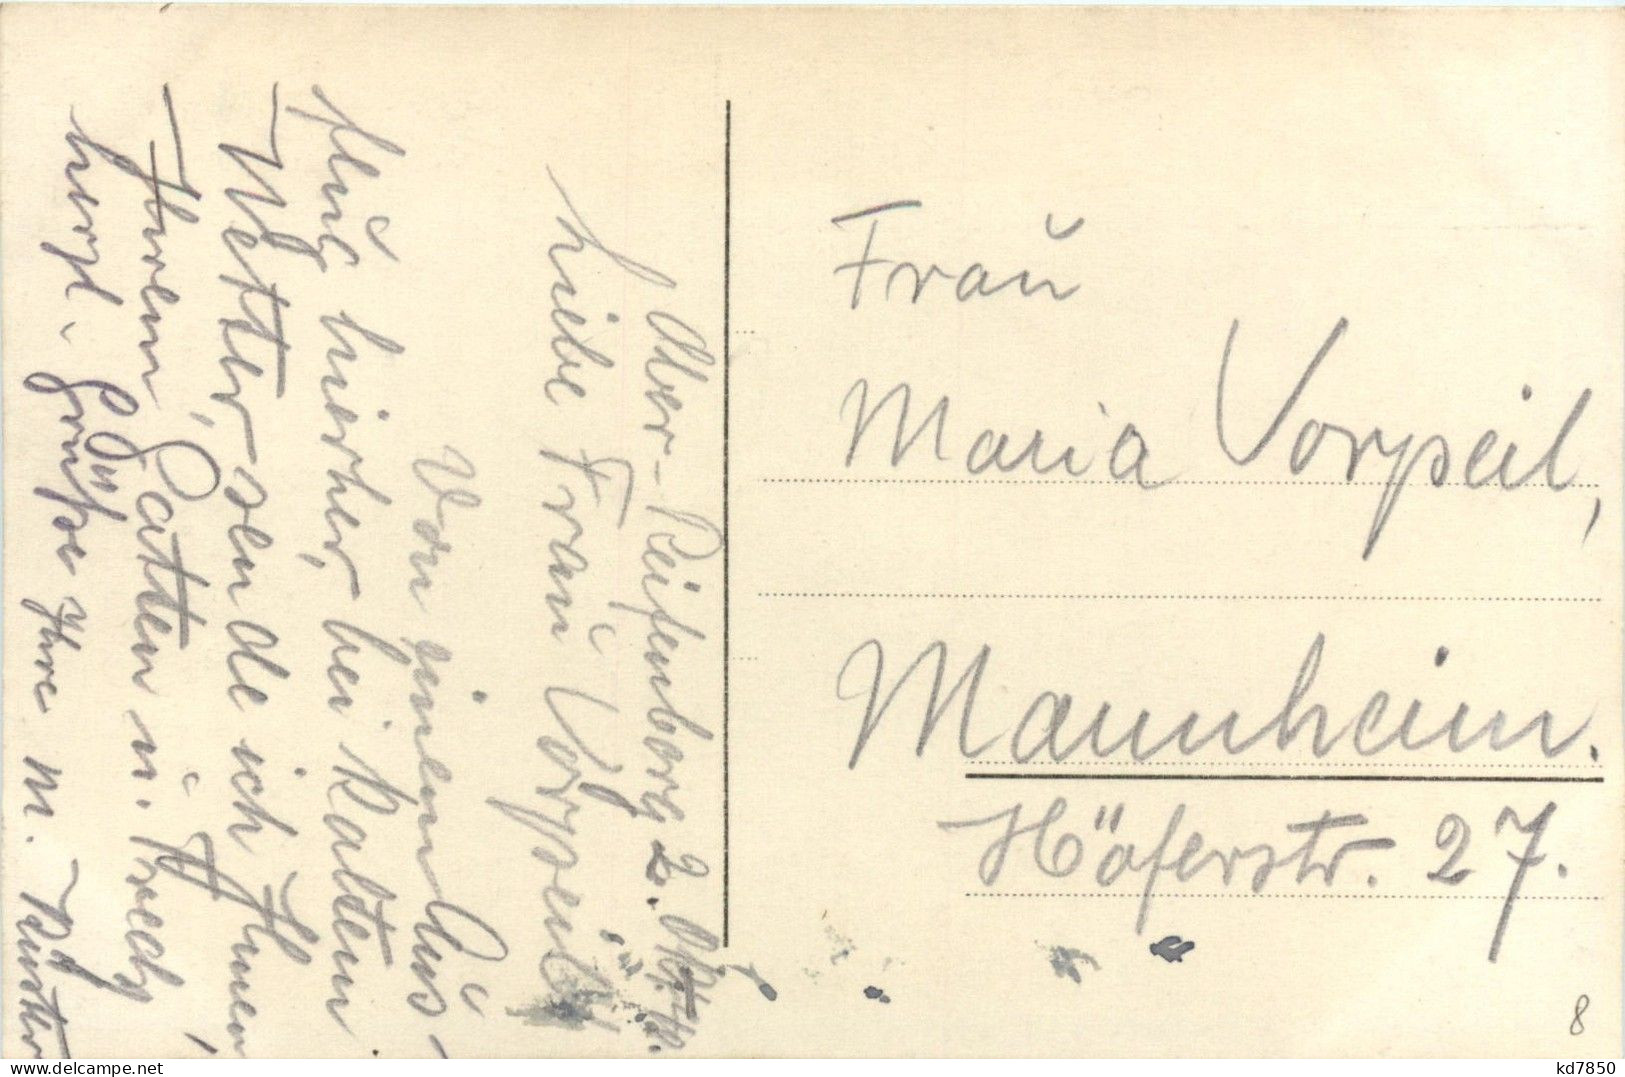 Ober-Reifenberg 2. Okt.
Liebe Frau Vorpeil!
Von einem Aus-
flug hierher, bei kaltem
Wetter, sende ich Ihnen,
Ihrem Gatten u.
herzl. Grüße Ihre M.
Frau
Maria Vorpeil,
Mannheim.
Höferstr. 27.
8
delcampe.net
kd7850